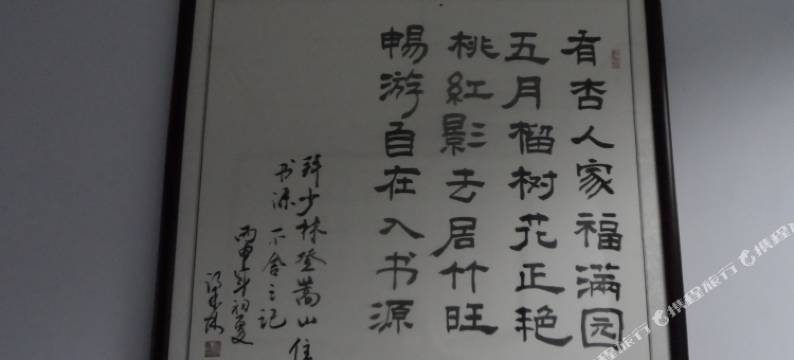 有杏人家福满园
五月榴树花正艳
桃紅影去居竹旺
暢游自在入书源
拜少林登嵩山住
书源不舍之记
丙申年初夏
携程旅行
携程旅行